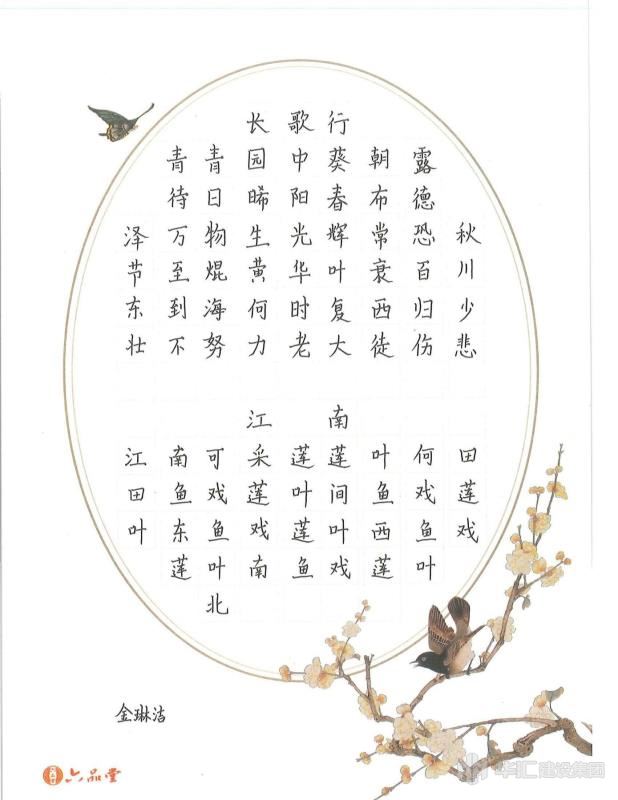 长歌行
青青园中葵朝露
待日晞阳春布德
泽万物生光辉常恐秋
节至焜黄华叶衰百川
东到海何时复西归少
壮不努力老大徒伤悲
江南
江南可采莲莲叶何田
田鱼戏莲叶间鱼戏莲
叶东鱼戏莲叶西鱼戏
莲叶南鱼戏莲叶
北
金琳洁
六品堂
华汇建设集团